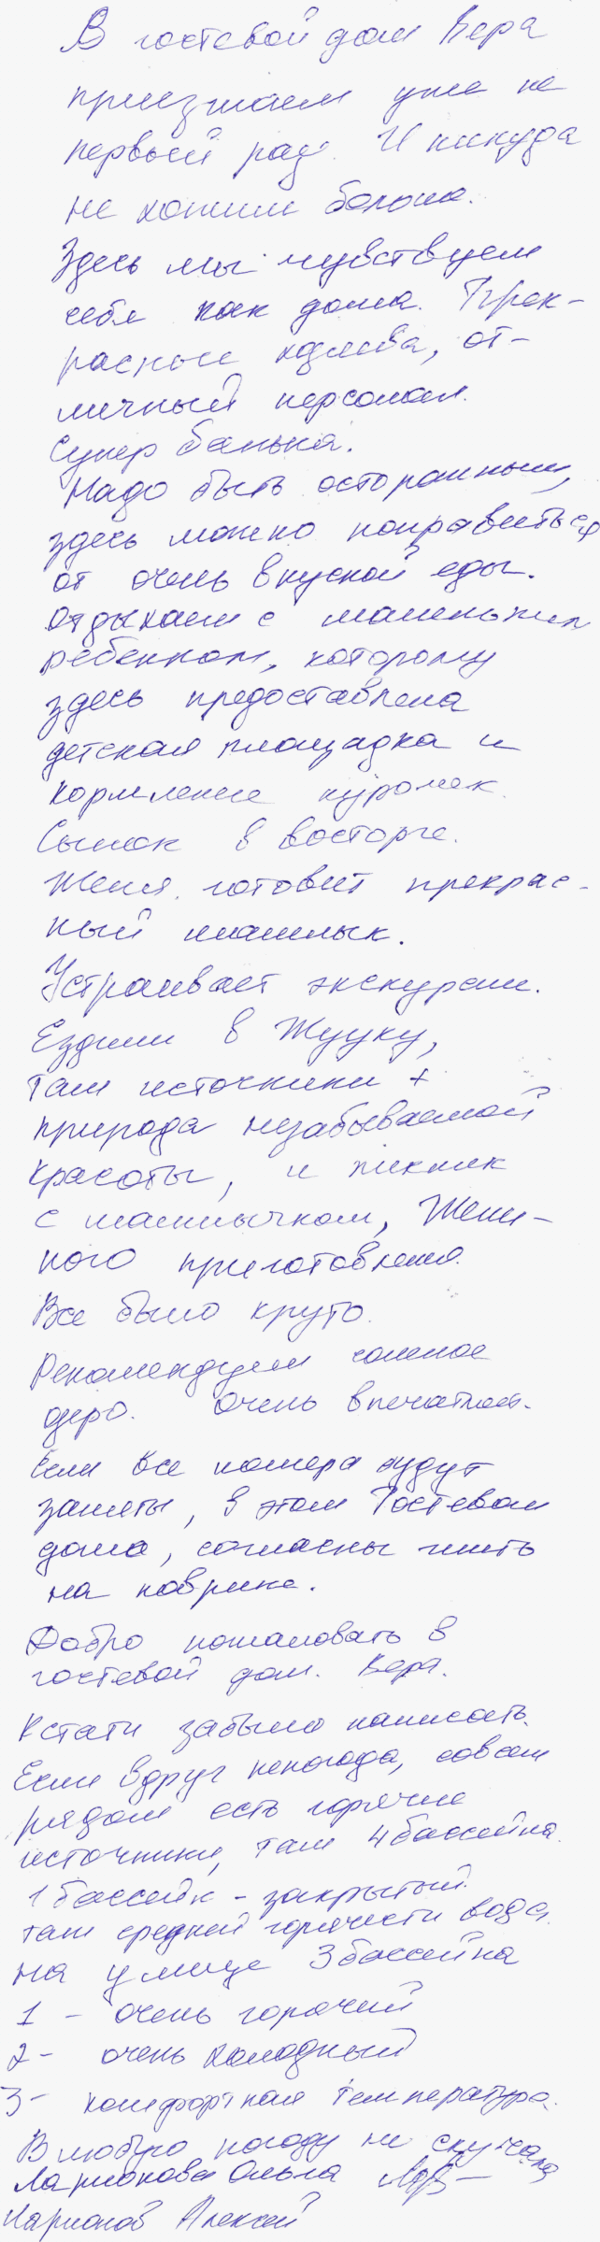 В гостевой дом Вера
приезжаем уже не
первый раз. И никуда
не хотим больше.
Здесь мы чувствуем
себя как дома. Прек-
расные хозяева, от-
личный персонал.
Супер банька.
Надо быть осторожным,
здесь можно поправиться
от очень вкусной еды.
Отдыхаем с маленьким
ребенком, которому
здесь предоставлена
детская площадка и
кормление курочек.
Сынок в восторге.
Женя готовит прекрас-
ный шашлык.
Устраивает экскурсии.
Ездили в Жууку,
там источники +
природа незабываемой
красоты, и пикник
с шашлычком, Жени-
ного приготовления.
Все было круто.
Рекомендуем соленое
озеро. Очень впечатлит.
Если все номера будут
заняты, в этом Гостевом
доме, согласны жить
на коврике.
Добро пожаловать в
гостевой дом. Вера.
Кстати забыла написать.
Если вдруг непогода, совсем
рядом есть горячие
источники, там 4 бассейна.
1 бассейн - закрытый.
там средней горячести вода.
на улице 3 бассейна
1 - очень горячий
2 - очень холодный
3 - комфортная температура.
В любую погоду не скучно
Ларионова Ольга
Ларионов Алексей